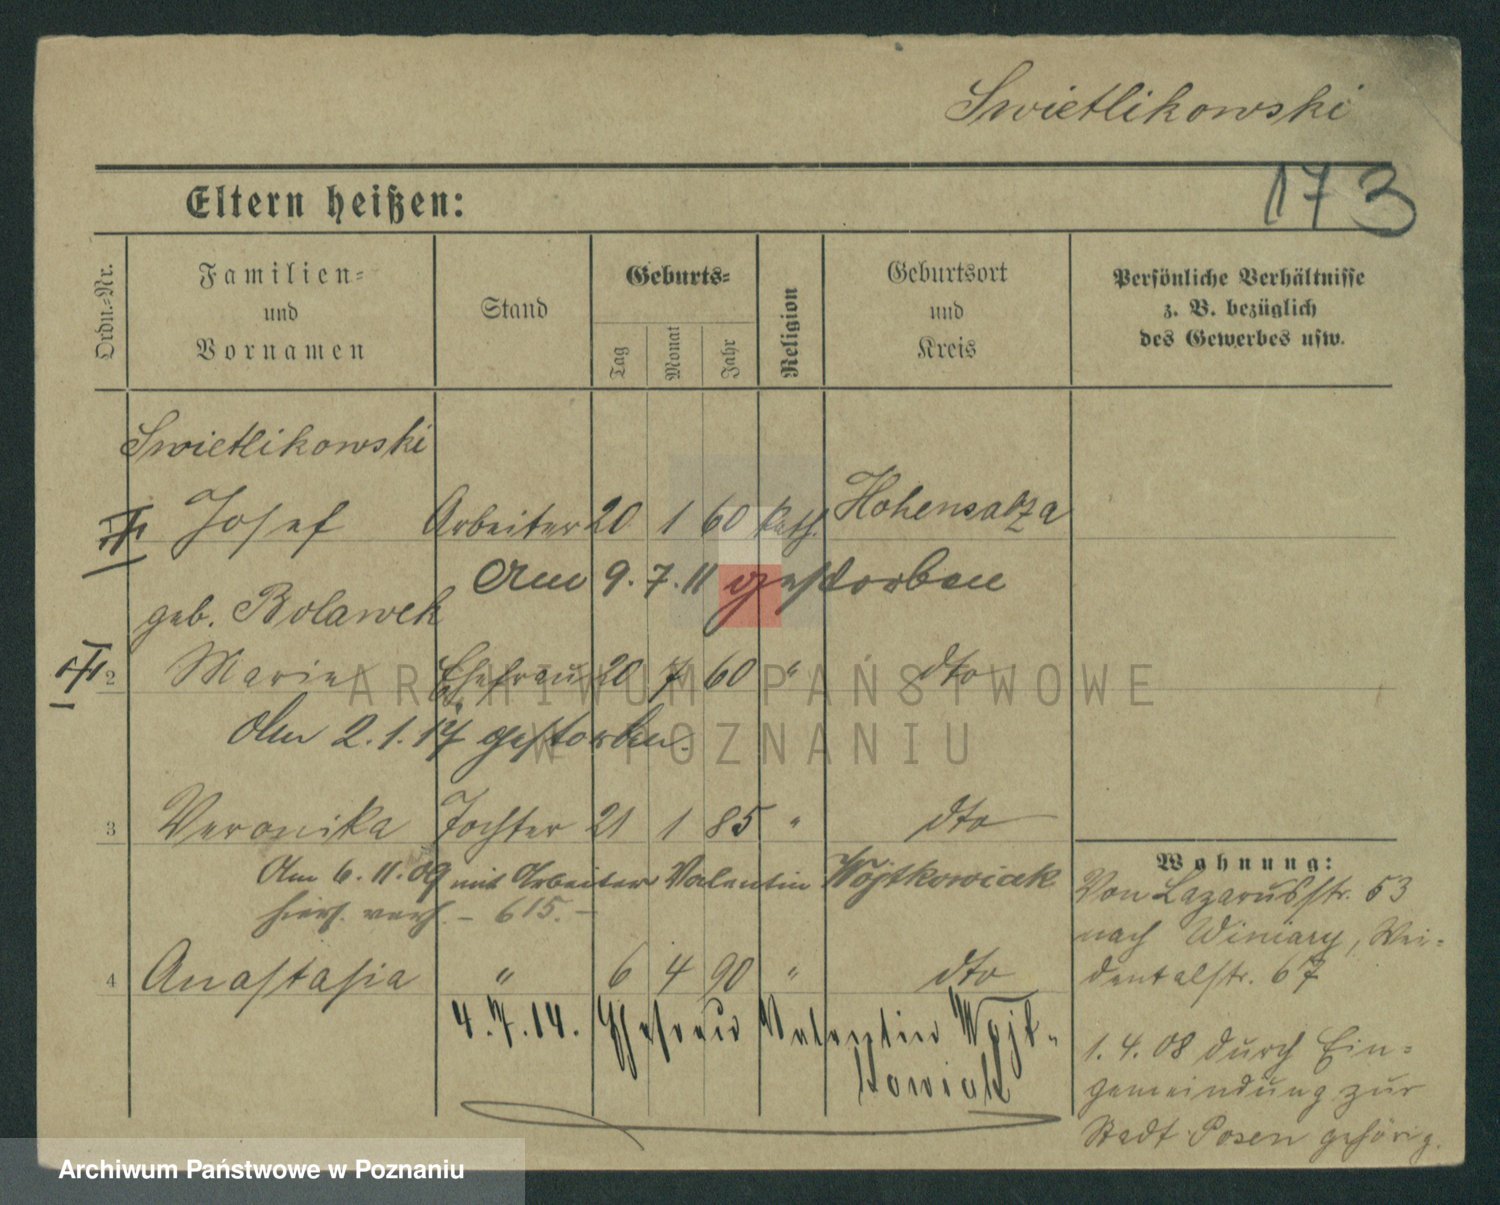 Swietlikowski
173
Eltern heißen:
Ordn.-Nr.
Familien-
und
Vornamen
Stand
Geburts-
Tag
Monat
Jahr
Religion
Geburtsort
und
Kreis
Persönliche Verhältnisse
z. B. bezüglich
des Gewerbes usw.
Swietlikowski
Josef Arbeiter 20 1 60 kath. Hohensalza
Am 9.7.11 gestorben
geb. Bolawek
2 Marie Ehefrau 20 7 60 " dto
Am 2.1.14 gestorben.
3 Veronika Tochter 21 1 85 " dto
Am 6.11.09 mit Arbeiter Valentin Wojtkowiak
hier verh. – 615. –
4 Anastasia " 6 4 90 " dto
4.7.14. Ehefrau Valentin Wojt-
kowiak
Wohnung:
Von Lazarusstr. 53
nach Winiary, Wei-
dentalstr. 67
1.4.08 durch Ein-
gemeindung zur
Stadt Posen gehörig.
ARCHIWUM PAŃSTWOWE
W POZNANIU
Archiwum Państwowe w Poznaniu